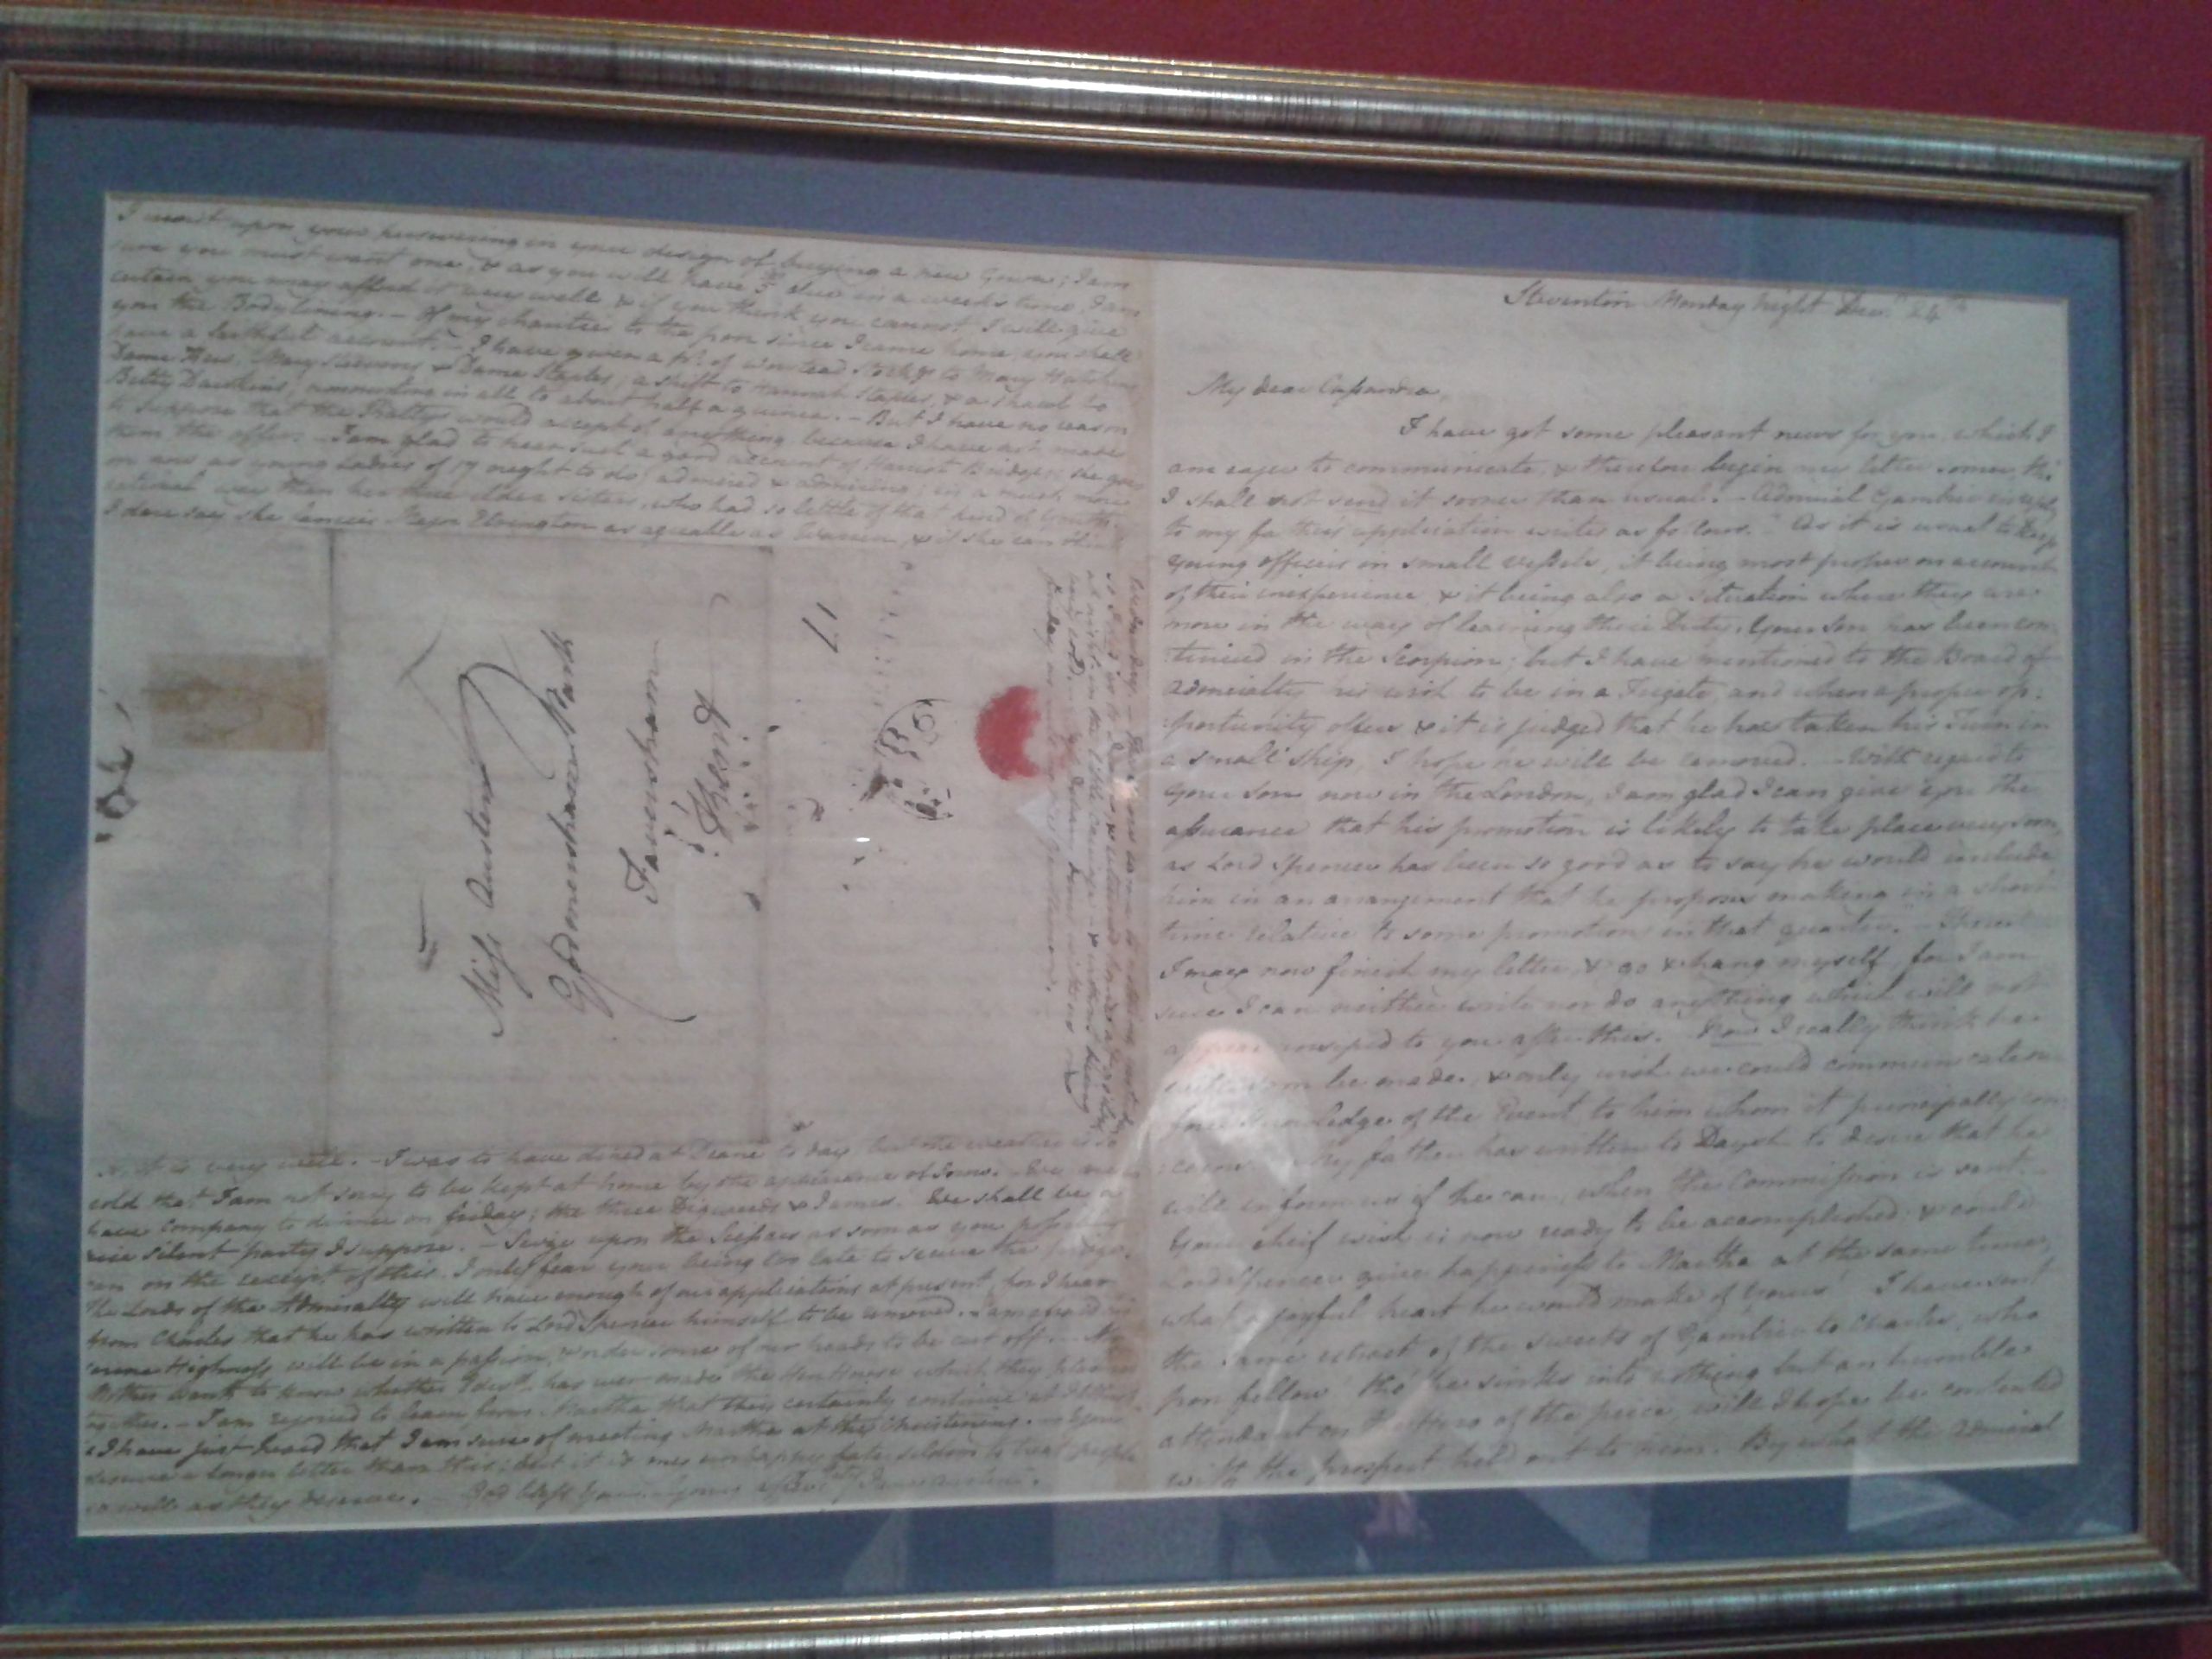 Steventon Monday night Decr 24th
My dear Cassandra
I have got some pleasant news for you, which I
am eager to communicate, & therefore begin my letter sooner, tho'
I shall not send it sooner than usual. — Admiral Gambier in reply
to my father's application writes as follows. "As it is usual to keep
young officers in small vessels, it being most proper on account
of their inexperience, & it being also a situation where they are
more in the way of learning their Duty, Your Son has been con
tinued in the Scorpion; but I have mentioned to the Board of
Admiralty his wish to be in a Frigate, and when a proper op-
portunity offers & it is judged that he has taken his Turn in
a small Ship, I hope he will be removed. — With regard to
your Son now in the London, I am glad I can give you the
assurance that his promotion is likely to take place very soon,
as Lord Spencer has been so good as to say he would include
him in an arrangement that he proposes making in a short
time relative to some promotions in that quarter." — There!
I may now finish my letter, & go & hang myself, for I am
sure I can neither write nor do anything which will not
appear insipid to you after this. Now I really think he
will soon be made, & only wish we could communicate our
fore-knowledge of the Event, to him whom it principally con
cerns. My father has written to Daysh to desire that he
will inform us if he can, when the Commission is sent.
Your cheif wish is now ready to be accomplished; & could
Lord Spencer give happiness to Martha at the same time,
what a joyful heart he would make of Yours! I have sent
the same extract of the sweets of Gambier to Charles, who
poor fellow! tho' he sinks into nothing but an humble
attendant on the Hero of the peice, will I hope be contented
with the prospect held out to him. By what the Admiral
I insist upon your persevering in your design of buying a new Gown; I am
sure you must want one, & as you will have 5£ due in a week's time, I am
certain you may afford it very well, & if you think you cannot, I will give
you the Body lining. — Of my charities to the poor since I came home, you shall
have a faithful account. — I have given a pr of Worsted Stockgs to Mary Hutchins,
Dame Kew, Mary Steevens & Dame Staples; a shift to Hannah Staples, & a shawl to
Betty Dawkins; amounting in all to about half a guinea. — But I have no reason
to suppose that the Battys would accept of anything, because I have not made
them the offer. — I am glad to hear such a good account of Harriot Bridges; she goes
on now as young Ladies of 17 ought to do; admired & admiring; in a much more
rational way than her three elder Sisters, who had so little of that kind of Youth.
I dare say she fancies Major Elrington as agreable as Warren, & if she can think
Miss Austen
Godmersham Park
Faversham
Kent
Wednesday. —
at night in the little carriage, & without being
very cold.
so, it is very well. — I was to have dined at Deane to day, but the weather is so
cold that I am not sorry to be kept at home by the appearance of Snow. — We are to
have Company to dinner on friday; the three Digweeds & James. — We shall be a
nice silent party I suppose. — Seize upon the Scissors as soon as you possibly
can on the receipt of this. I only fear your being too late to secure the prize.
The Lords of the Admiralty will have enough of our applications at present, for I hear
from Charles that he has written to Lord Spencer himself to be removed. I am afraid his
Serene Highness will be in a passion, & order some of our heads to be cut off. — My
Mother wants to know whether Edwd has ever made the Hen House which they planned
together. — I am rejoiced to learn from Martha that they certainly continue at Ibthrop,
& I have just heard that I am sure of meeting Martha at the Christening. — You
deserve a longer letter than this; but it is my unhappy fate seldom to treat people
so well as they deserve. — God bless You. — Yours affecly Jane Austen.